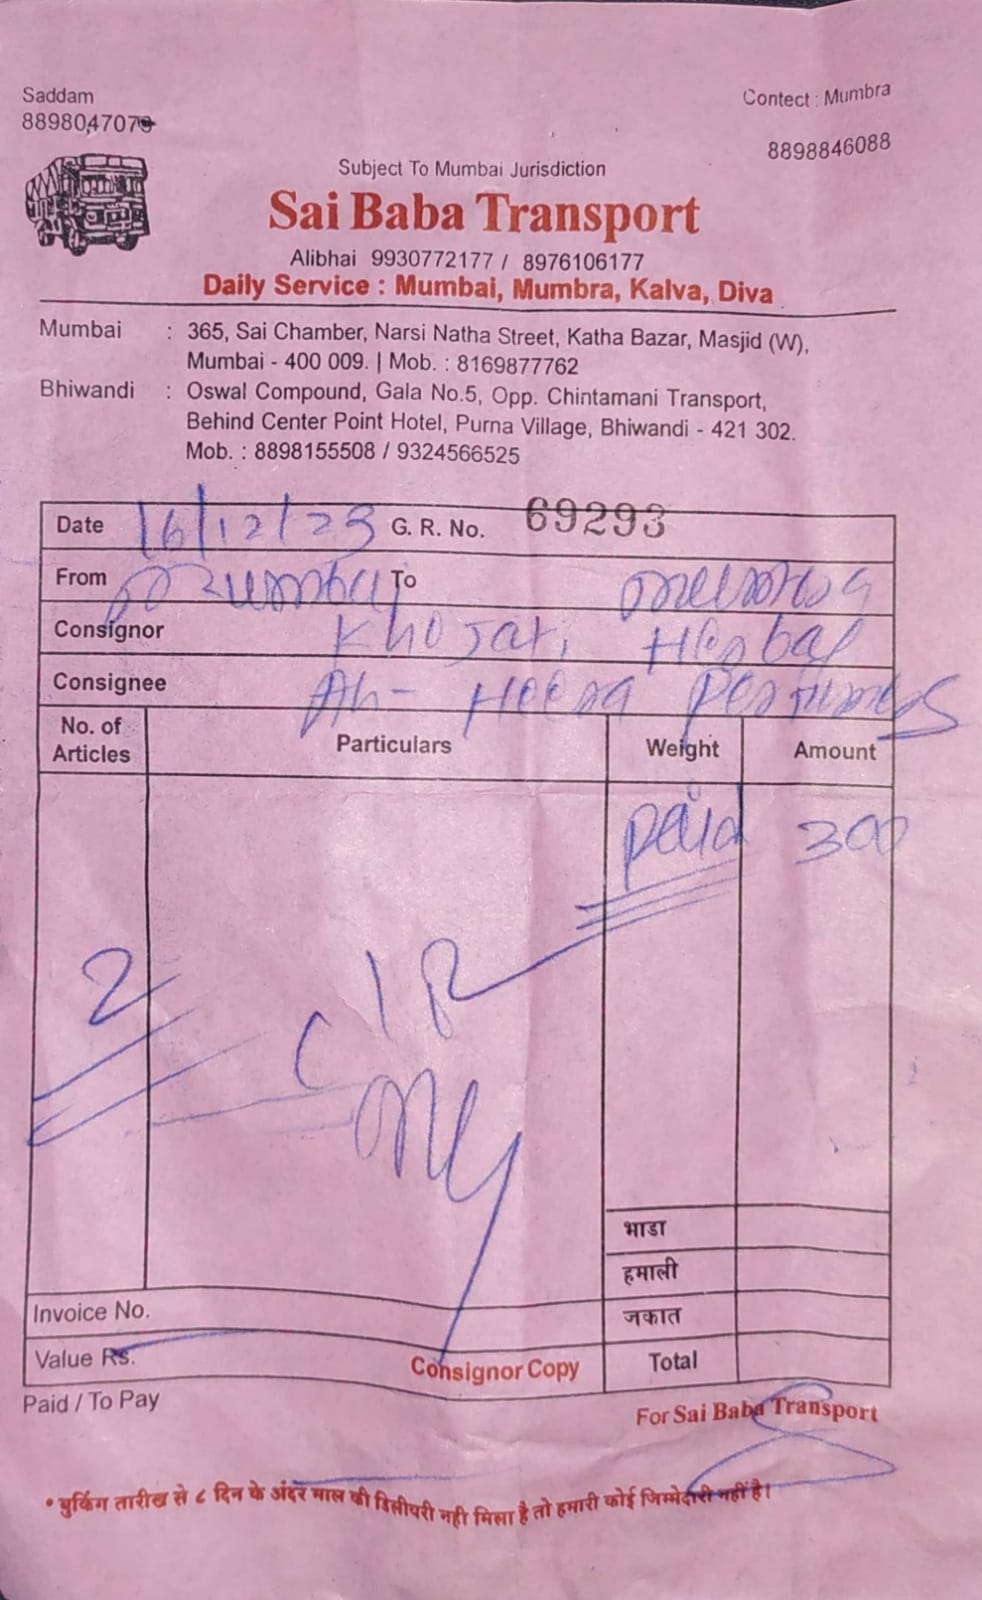 Saddam
Contect : Mumbra
8898047079
8898846088
Subject To Mumbai Jurisdiction
Sai Baba Transport
Alibhai 9930772177 / 8976106177
Daily Service : Mumbai, Mumbra, Kalva, Diva
Mumbai : 365, Sai Chamber, Narsi Natha Street, Katha Bazar, Masjid (W),
Mumbai - 400 009. | Mob. : 8169877762
Bhiwandi : Oswal Compound, Gala No.5, Opp. Chintamani Transport,
Behind Center Point Hotel, Purna Village, Bhiwandi - 421 302.
Mob. : 8898155508 / 9324566525
Date 16/12/23 G. R. No. 69293
From Mumbai To Mumbra
Consignor Khojati Herbal
Consignee Al- Heera Perfumers
No. of Articles Particulars Weight Amount
Paid 300
2
भाडा
हमाली
Invoice No. जकात
Value Rs. Consignor Copy Total
Paid / To Pay
For Sai Baba Transport
• बुकिंग तारीख से ८ दिन के अंदर माल की डिलीवरी नही मिला है तो हमारी कोई जिम्मेदारी नहीं है।